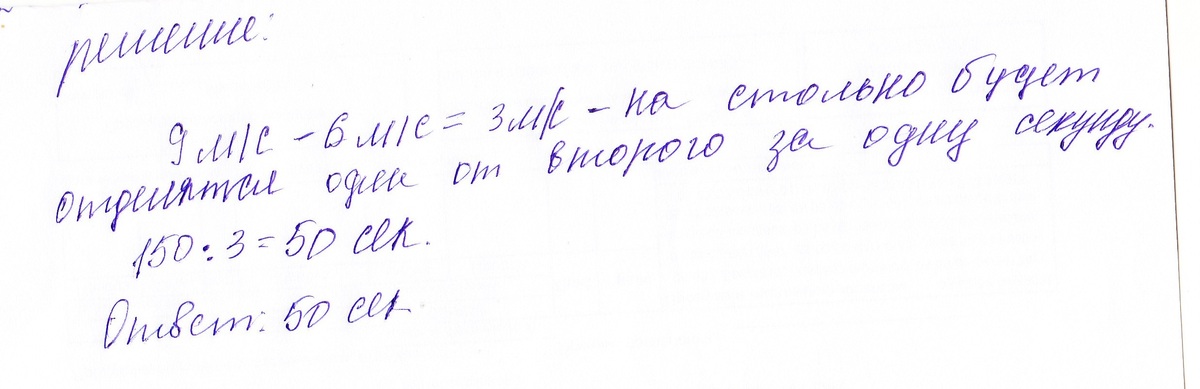 решение:
9 м/с - 6 м/с = 3 м/с - на столько будет
отделятся один от второго за одну секунду.
150 : 3 = 50 сек.
Ответ: 50 сек